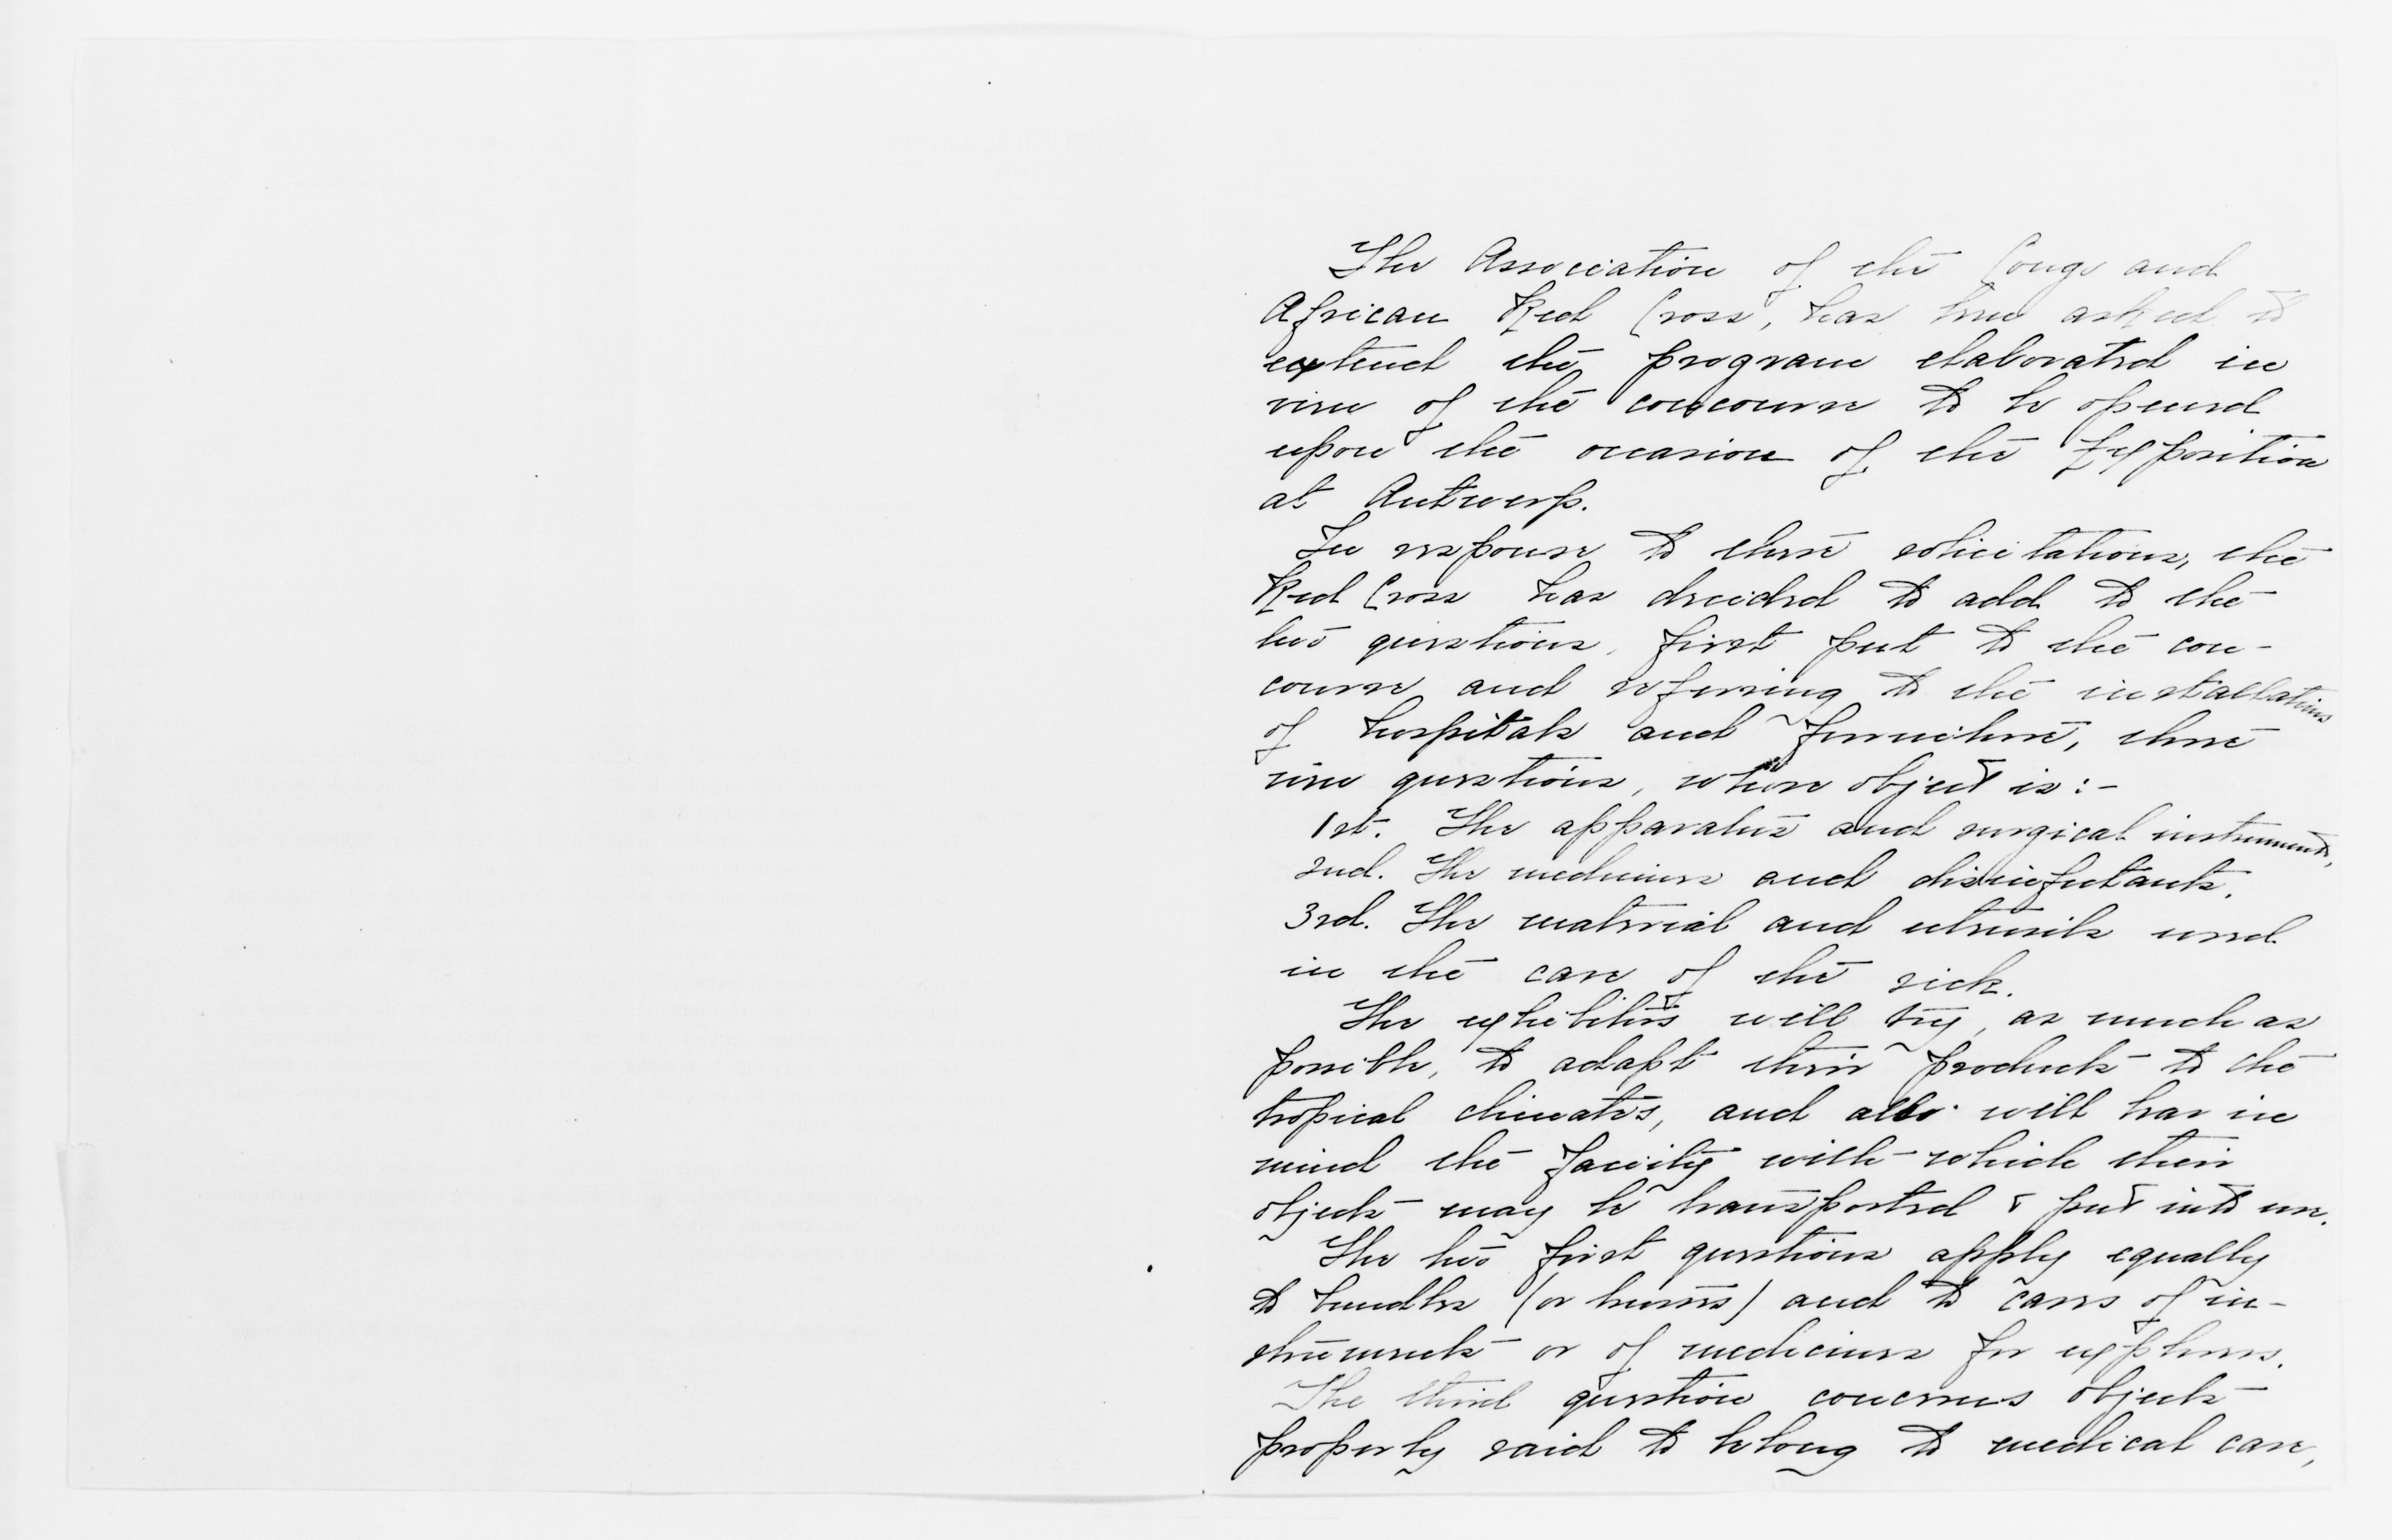 The Association of the Congo and
African Red Cross, has been asked to
extend the program elaborated in
view of the concourse to be opened
upon the occasion of the Exposition
at Antwerp.
In response to these solicitations, the
Red Cross has decided to add to the
two questions, first put to the con-
course and referring to the installations
of hospitals and furniture, three
new questions, whose object is:-
1st. The apparatus and surgical instruments,
2nd. The medicines and disinfectants.
3rd. The material and utensils used
in the care of the sick.
The exhibitors will try, as much as
possible, to adapt their products to the
tropical climates, and also will bear in
mind the facility with which their
objects may be transported & put into use.
The two first questions apply equally
to bundles (or trusses) and to cases of in-
struments or of medicines for explorers.
The third question concerns objects
properly said to belong to medical care,